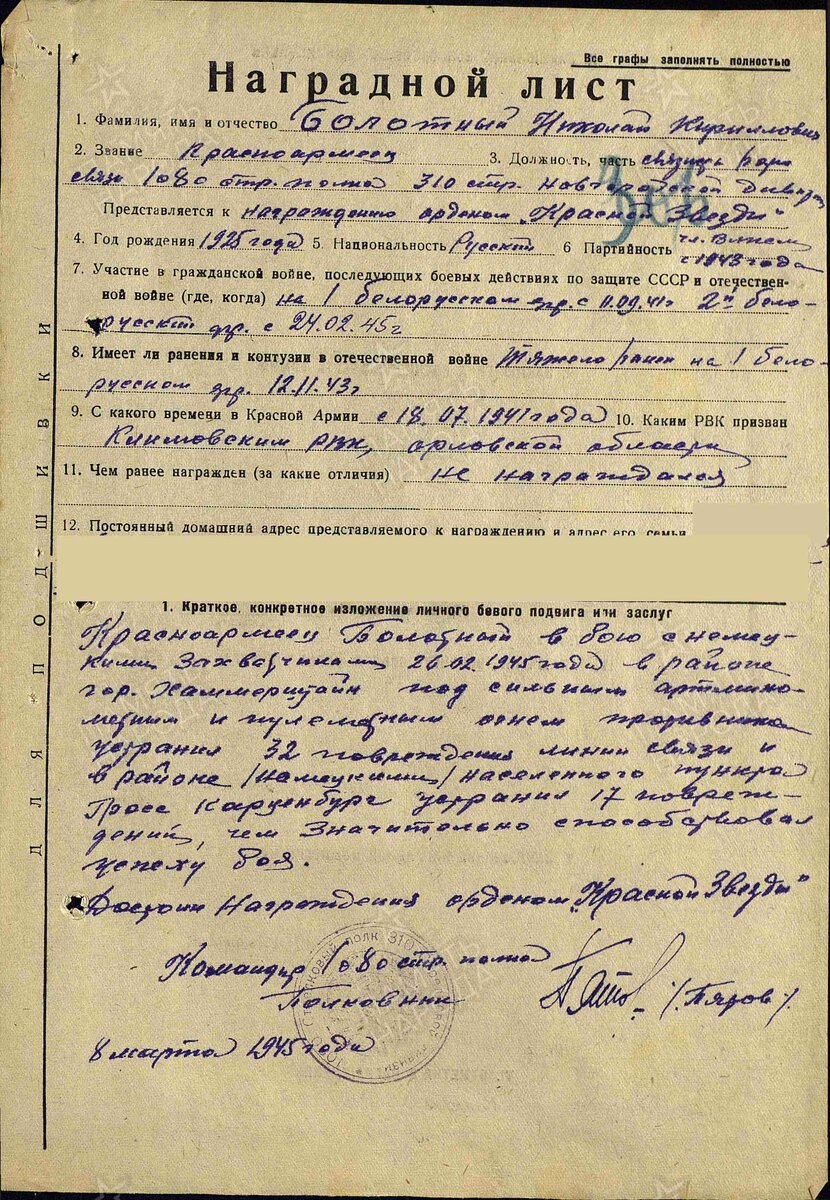 Все графы заполнять полностью
Наградной лист
1. Фамилия, имя и отчество Болотный Николай Кириллович
2. Звание Красноармеец 3. Должность, часть связист роты
связи 1080 стр. полка 310 стр. Новгородской дивизии
Представляется к награждению орденом „Красной Звезды"
4. Год рождения 1925 года 5. Национальность Русский 6 Партийность чл. ВЛКСМ
с 1943 года
7. Участие в гражданской войне, последующих боевых действиях по защите СССР и отечествен-
ной войне (где, когда) на 1 белорусском фр. с 11.09.41г 2й бело-
русский фр. с 24.02.45г
8. Имеет ли ранения и контузии в отечественной войне Тяжело ранен на 1 бело-
русском фр. 12.11.43г
9. С какого времени в Красной Армии с 18.07.1941 года 10. Каким РВК призван
Климовским РВК, орловской области
11. Чем ранее награжден (за какие отличия) не награждался
12. Постоянный домашний адрес представляемого к награждению и адрес его семьи
1. Краткое, конкретное изложение личного боевого подвига или заслуг
Красноармеец Болотный в бою с немец-
кими захватчиками 26.02.1945 года в районе
гор. Хаммерштайн под сильным артмино-
метным и пулеметным огнем противника
устранил 32 повреждения линии связи и
в районе /немецкими/ населенного пункта
Гросс Карценбург устранил 17 повреж-
дений, чем значительно способствовал
успеху боя.
Достоин награждения орденом „Красной Звезды"
Командир 1080 стр. полка
Полковник /Пятов/.
8 марта 1945 года
ДЛЯ ПОДШИВКИ